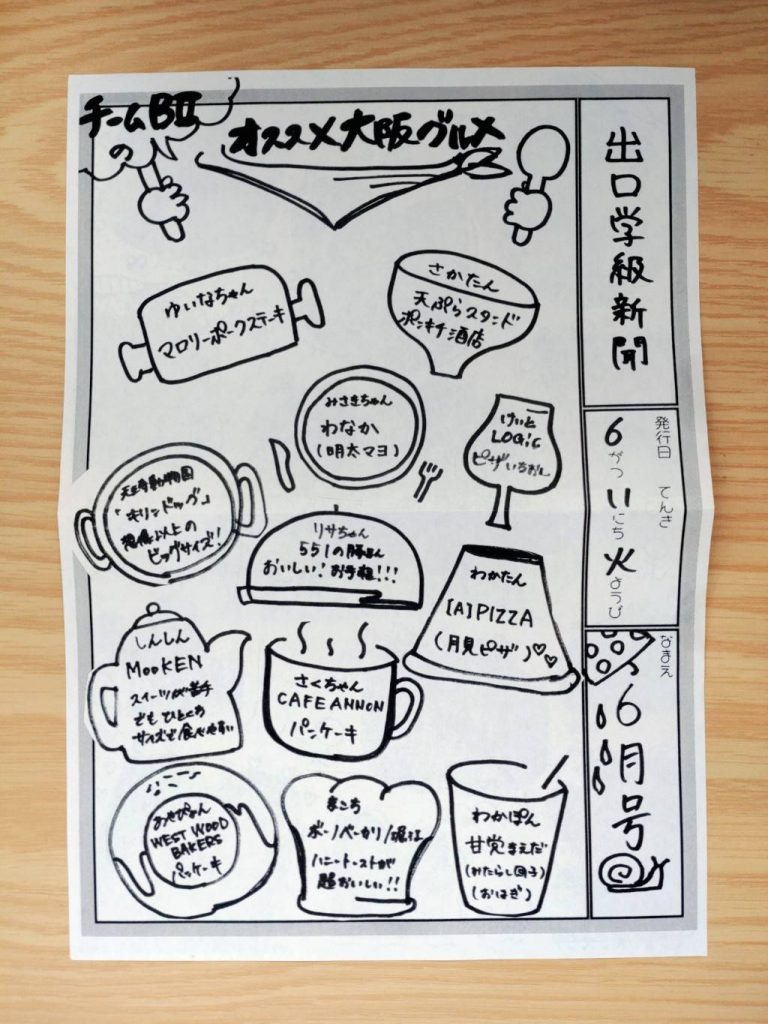 チームBⅡ
の
オススメ大阪グルメ
出口学級新聞
発行日
てんき
6がつ11にち火ようび
なまえ
6月号
ゆいなちゃん
マロリーポークステーキ
さかたん
天ぷらスタンド
ポンキチ酒店
みさきちゃん
わなか
(明太マヨ)
けいと
LOGiC
ピザいちおし
天王寺動物園
「キリンドッグ」
想像以上の
ビッグサイズ!!
リサちゃん
551の豚まん
おいしい!お手軽!!!
わかたん
[A]PIZZA
(月見ピザ)♡♡
しんしん
MooKEN
スイーツが苦手
でもひとくち
サイズで食べやすい
さくちゃん
CAFE ANNON
パンケーキ
WEST WOOD
BAKERS
パンケーキ
まこち
ボーノベーカリー/堀江
ハニートーストが
超おいしい!!
わかぽん
甘党まえだ
(みたらし団子)
(おはぎ)